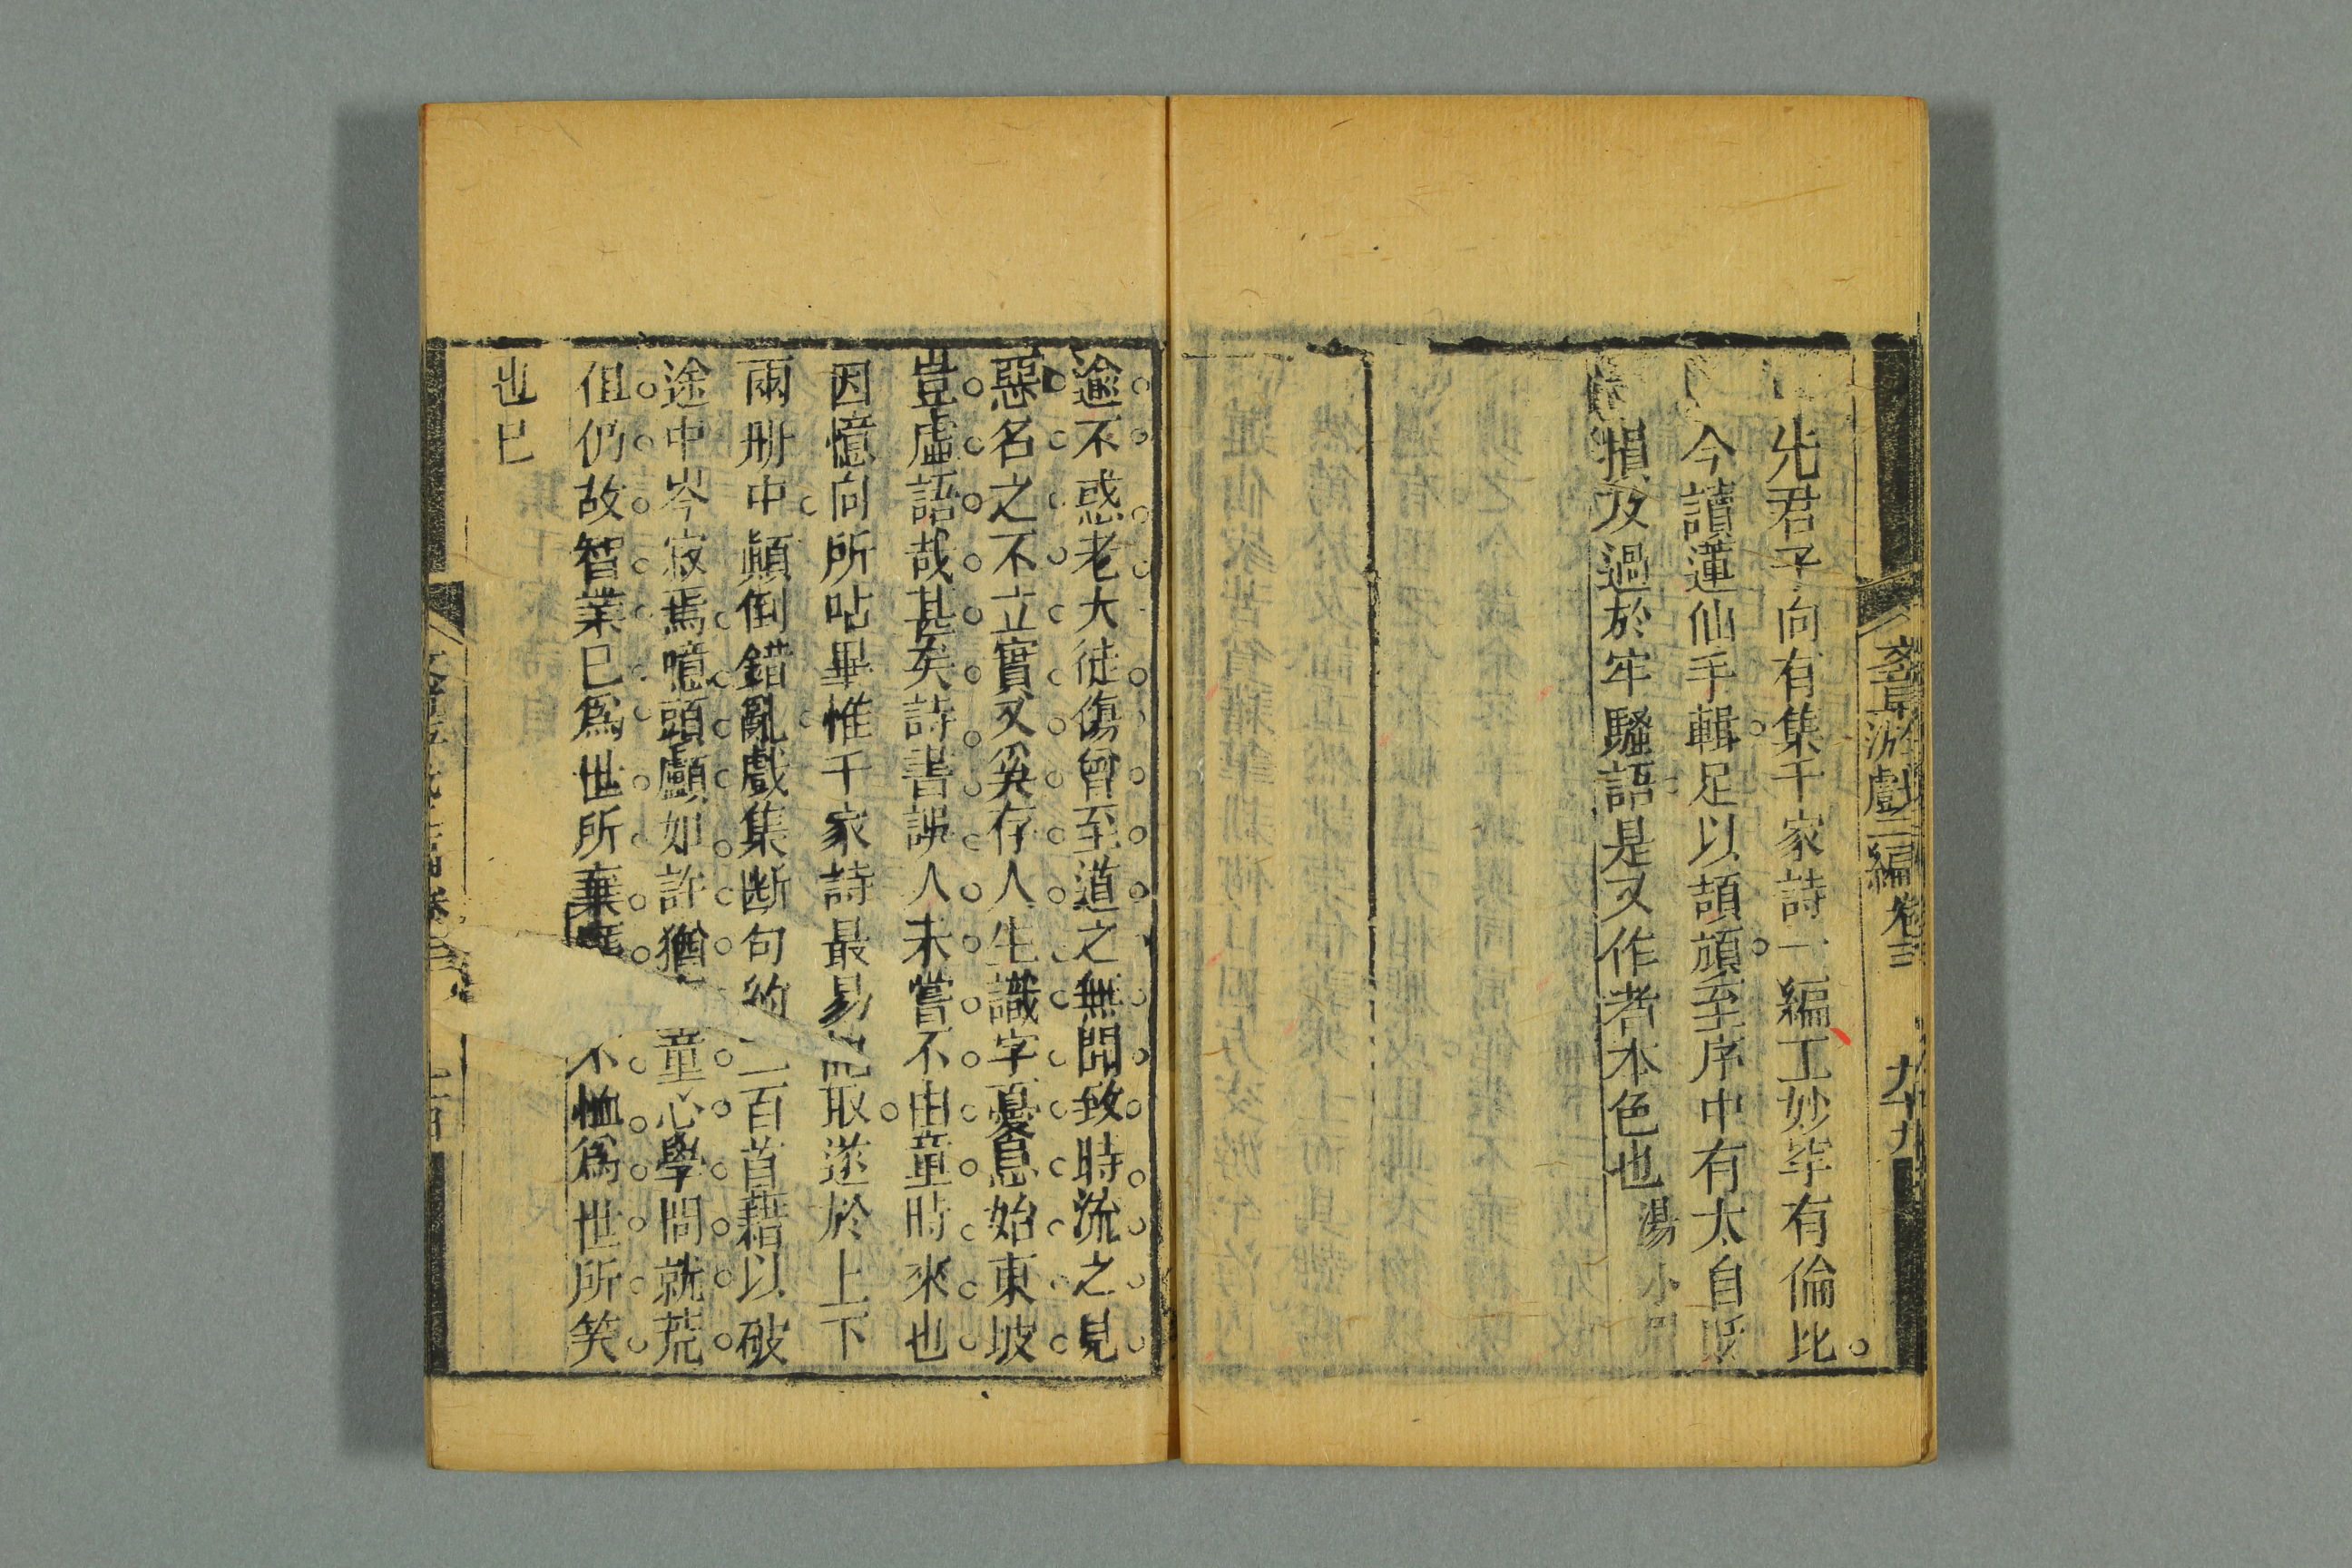 游戲三編 卷三 九十九
先君子向有集千家詩一編工妙罕有倫比
今讀蓮仙手輯足以頡頏至序中有太自貶
損及過於牢騷語是又作者本色也 湯
逾不惑老大徒傷曾至道之無聞致時流之見
惡名之不立實又奚存人生識字憂患始東坡
豈虛語哉甚矣詩書誤人未嘗不由童時來也
因憶向所呫畢惟千家詩最易 取遂於上下
兩册中顛倒錯亂戲集斷句約 二百首藉以破
途中岑寂焉噫頭顱如許猶 童心學問就荒
伹仍故智業已爲世所棄 不恤爲世所笑
也已
卷三 一百